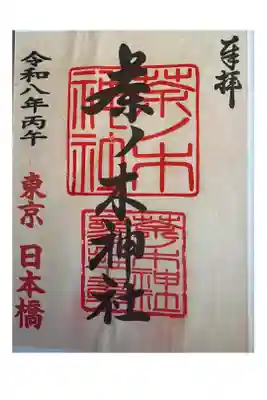 奉拝
茶ノ木神社
令和八年丙午
東京 日本橋
茶ノ木
神社